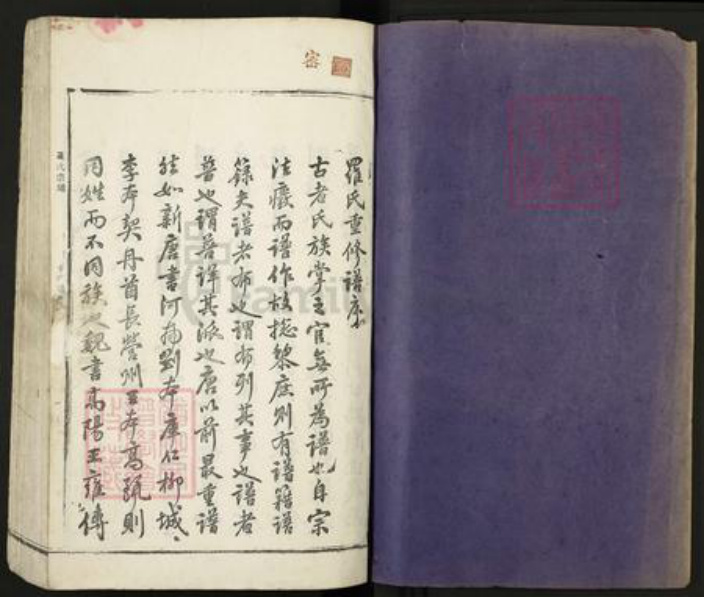 密
羅氏重修譜序
古者氏族掌之官無所為譜也自宗
法癈而譜作故搃黎庶則有譜籍譜
籙夫譜者布也謂布列其事也譜者
普也謂普詳其派也唐以前最重譜
然如新唐書河南劉本庫仁柳城、
李本契丹酋長營州王本高麗則
同姓而不同族也魏書高陽王雍傳
羅氏宗譜